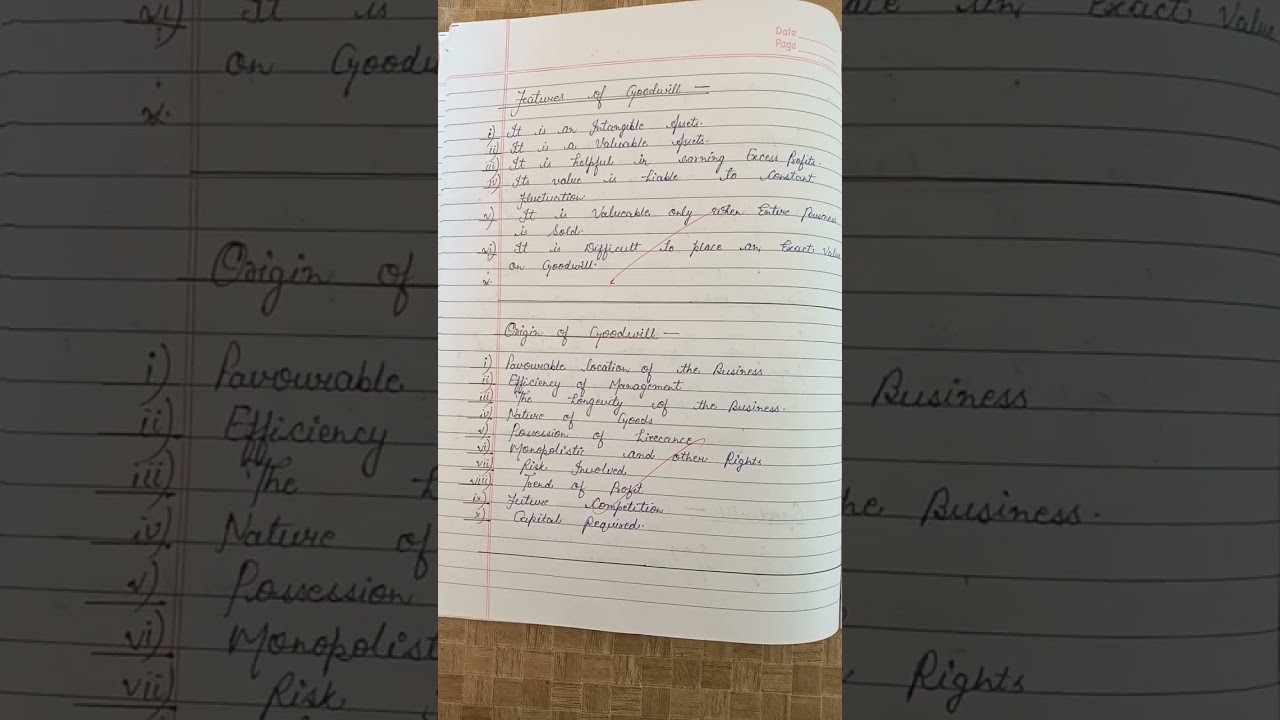 Date
Page
Features of Goodwill —
i) It is an Intangible Assets.
ii) It is a Valuable Assets.
iii) It is helpful in earning Excess Profits.
iv) Its value is liable to constant
fluctuation
v) It is Valueable only when Entire Business
is Sold.
vi) It is Difficult to place an Exact Value
on Goodwill.
x.
Origin of Goodwill —
i) Favourable location of the Business
ii) Efficiency of Management
iii) The Longevity of the Business.
iv) Nature of Goods
v) Possession of Licecance
vi) Monopolistic and other Rights
vii) Risk Involved
viii) Trend of Profit
ix) Future Competition
x) Capital Required.